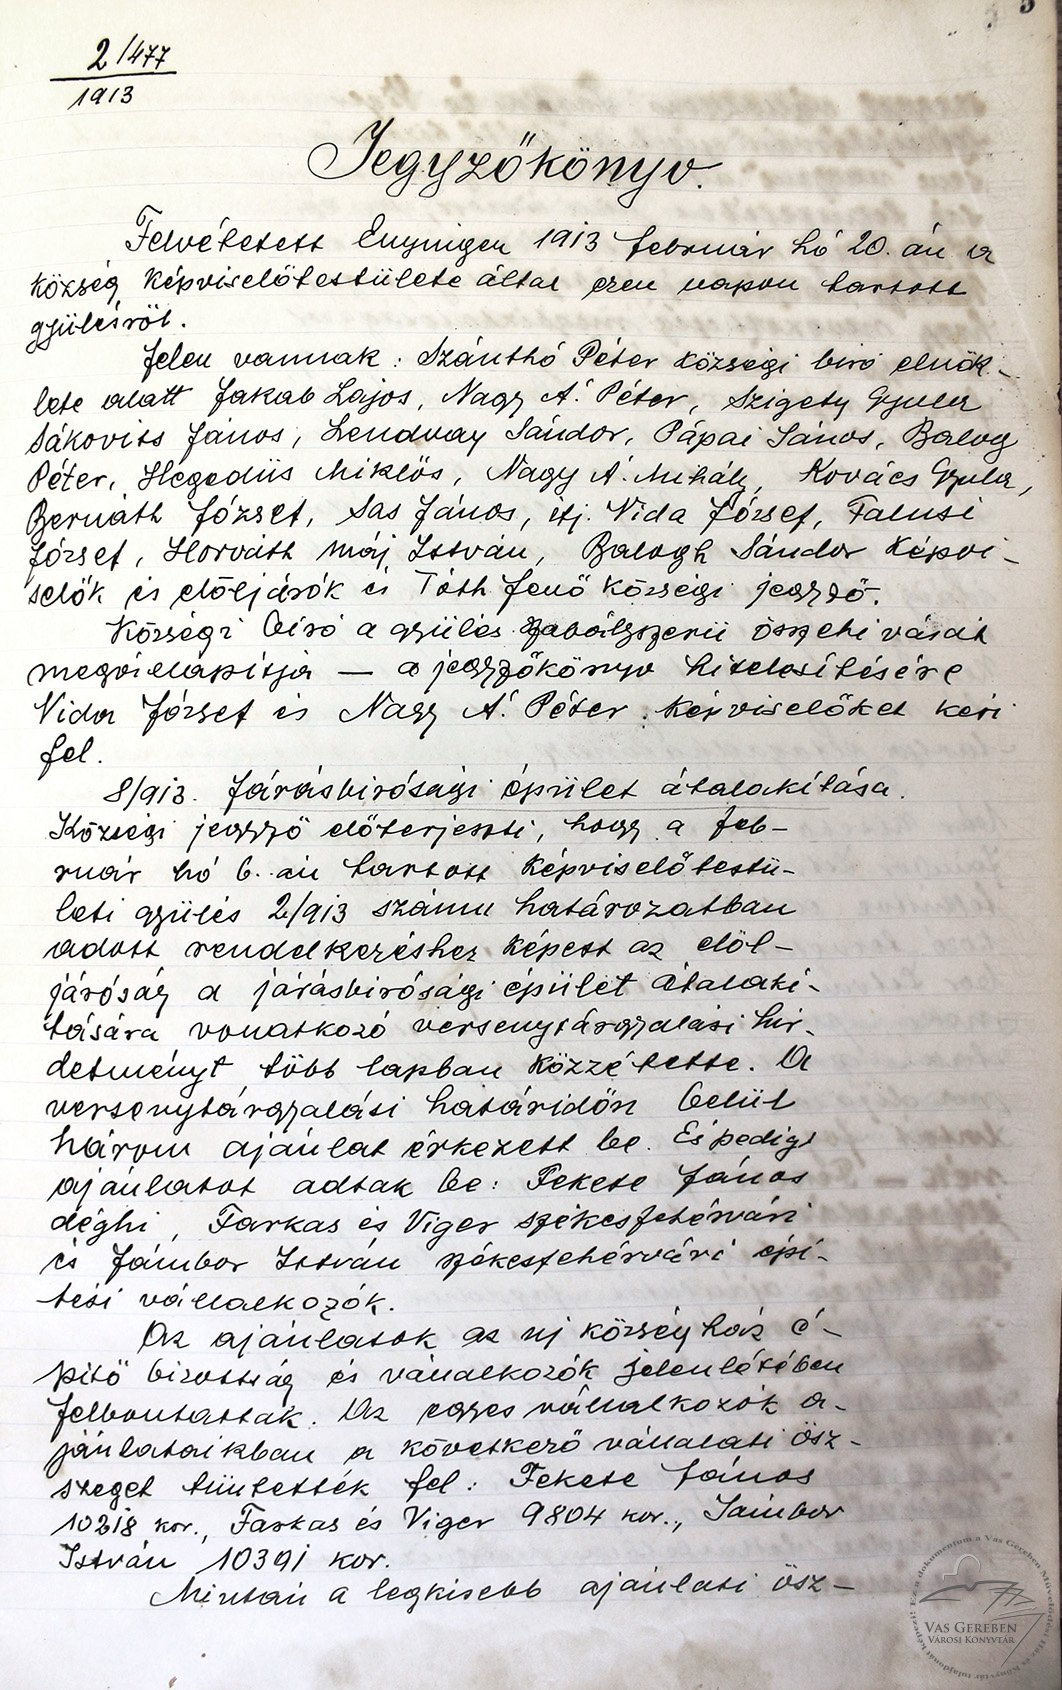 2/477
1913
Jegyzőkönyv.
Felvétetett Enyingen 1913 február hó 20.-án a
község képviselőtestülete által ezen napon tartott
gyülésről.
Jelen vannak: Szánthó Péter községi biró elnök-
lete alatt Jakab Lajos, Nagy Á. Péter, Szigety Gyula
Sákovits János, Lendvay Sándor, Pápai János, Balog
Péter, Hegedüs Miklós, Nagy Á. Mihály, Kovács Gyula,
Bernáth József, Sas János, ifj. Vida József, Falusi
József, Horváth máj István, Balogh Sándor képvi-
selők és előljárók és Tóth Jenő községi jegyző.
Községi biró a gyülés szabályszerü összehivását
megállapitja — a jegyzőkönyv hitelesítésére
Vida József és Nagy Á. Péter képviselőket kéri
fel.
8/913. Járásbirósági épület átalakítása.
Községi jegyző előterjeszti, hogy a feb-
ruár hó 6.-án tartott képviselőtestü-
leti gyülés 2/913 számu határozatban
adott rendelkezéshez képest az elöl-
járóság a járásbirósági épület átalaki-
tására vonatkozó versenytárgyalási hir-
detményt több lapban közzétette. A
versenytárgyalási határidőn belül
három ajánlat érkezett be. És pedig
ajánlatot adtak be: Fekete János
déghi, Farkas és Viger székesfehérvári
és Jámbor István székesfehérvári épí-
tési vállalkozók.
Az ajánlatok az uj községház é-
pítő bizottság és vállalkozók jelenlétében
felbontattak. Az egyes vállalkozók a-
jánlataikban a következő vállalati ösz-
szeget tüntették fel: Fekete János
10218 kor., Farkas és Viger 9804 kor., Jámbor
István 10391 kor.
Miután a legkisebb ajánlati ösz-
VAS GEREBEN
VÁROSI KÖNYVTÁR